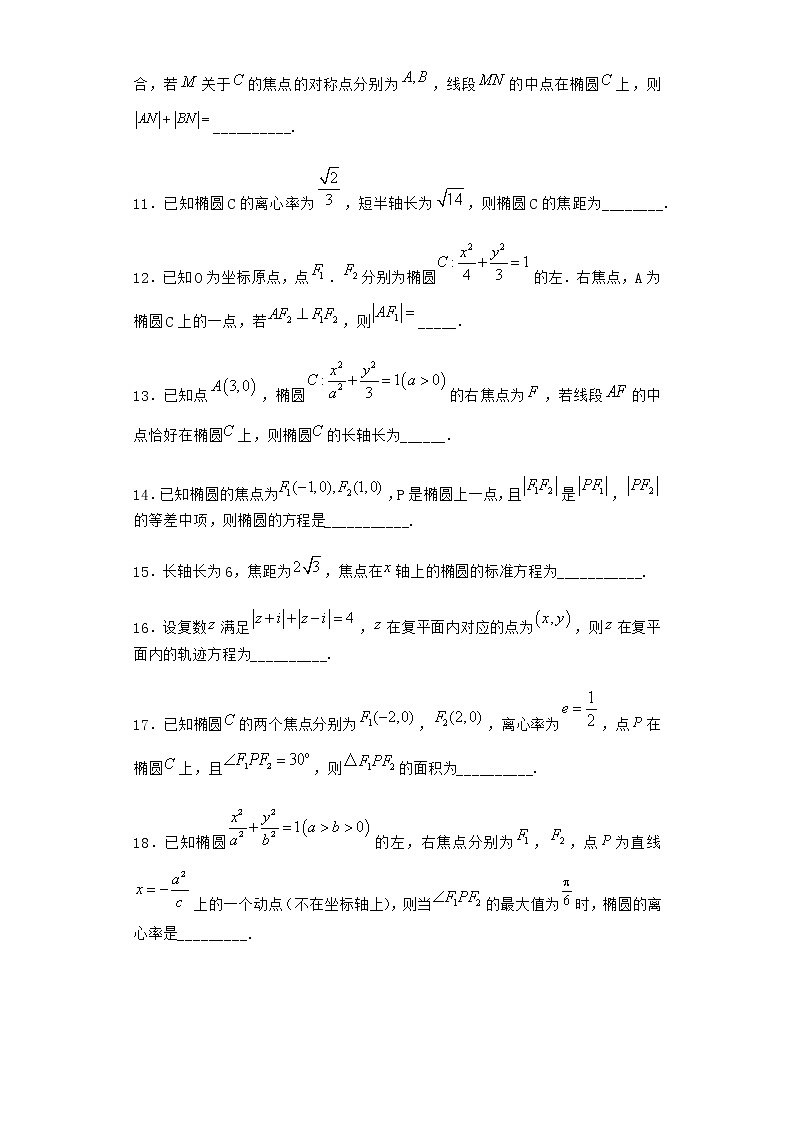 合,若 M 关于 C 的焦点的对称点分别为 A, B ,线段 MN 的中点在椭圆 C 上,则
|AN| + |BN| = __________.
11.已知椭圆 C 的离心率为 √2/3 ,短半轴长为 √14 ,则椭圆 C 的焦距为________.
12.已知 O 为坐标原点,点 F₁ . F₂ 分别为椭圆 C : x²/4 + y²/3 = 1 的左.右焦点,A 为
椭圆 C 上的一点,若 AF₂ ⊥ F₁F₂ ,则 |AF₁| = _____.
13.已知点 A(3,0) ,椭圆 C : x²/a² + y²/3 = 1(a > 0) 的右焦点为 F ,若线段 AF 的中
点恰好在椭圆 C 上,则椭圆 C 的长轴长为______.
14.已知椭圆的焦点为 F₁(−1,0), F₂(1,0) ,P 是椭圆上一点,且 |F₁F₂| 是 |PF₁| , |PF₂|
的等差中项,则椭圆的方程是___________.
15.长轴长为 6,焦距为 2√3 ,焦点在 x 轴上的椭圆的标准方程为___________.
16.设复数 z 满足 |z + i| + |z − i| = 4 , z 在复平面内对应的点为 (x, y) ,则 z 在复平
面内的轨迹方程为__________.
17.已知椭圆 C 的两个焦点分别为 F₁(−2,0) , F₂(2,0) ,离心率为 e = 1/2 ,点 P 在
椭圆 C 上,且 ∠F₁PF₂ = 30° ,则 △F₁PF₂ 的面积为__________.
18.已知椭圆 x²/a² + y²/b² = 1(a > b > 0) 的左,右焦点分别为 F₁ , F₂ ,点 P 为直线
x = − a²/c 上的一个动点(不在坐标轴上),则当 ∠F₁PF₂ 的最大值为 π/6 时,椭圆的离
心率是_________.